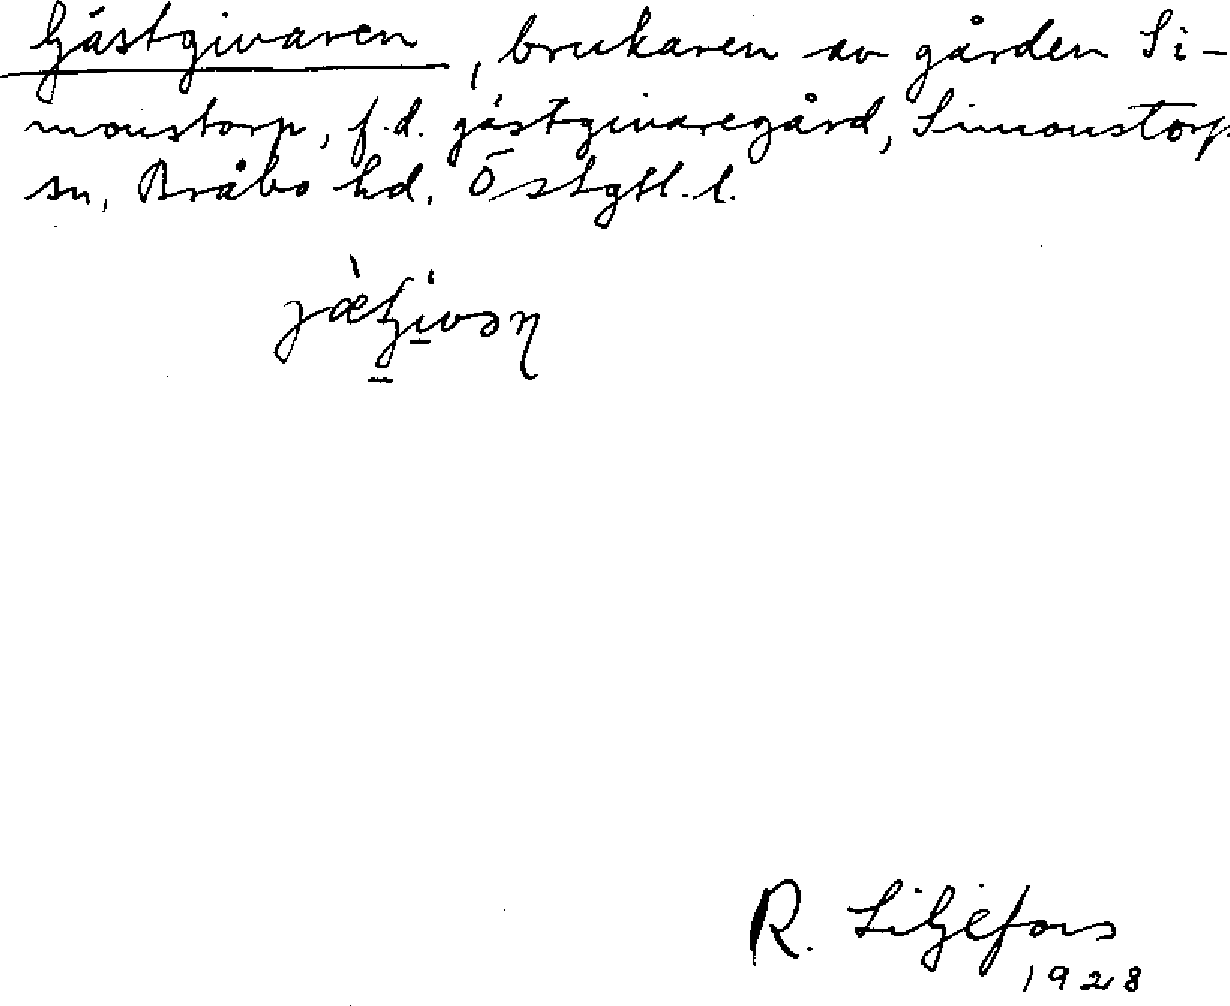 Gästgivaren, brukaren av gården Si-
monstorp, f.d. gästgivaregård, Simonstorp
sn, Bråbo hd. Östgtl. l.
R. Liljefors
1928